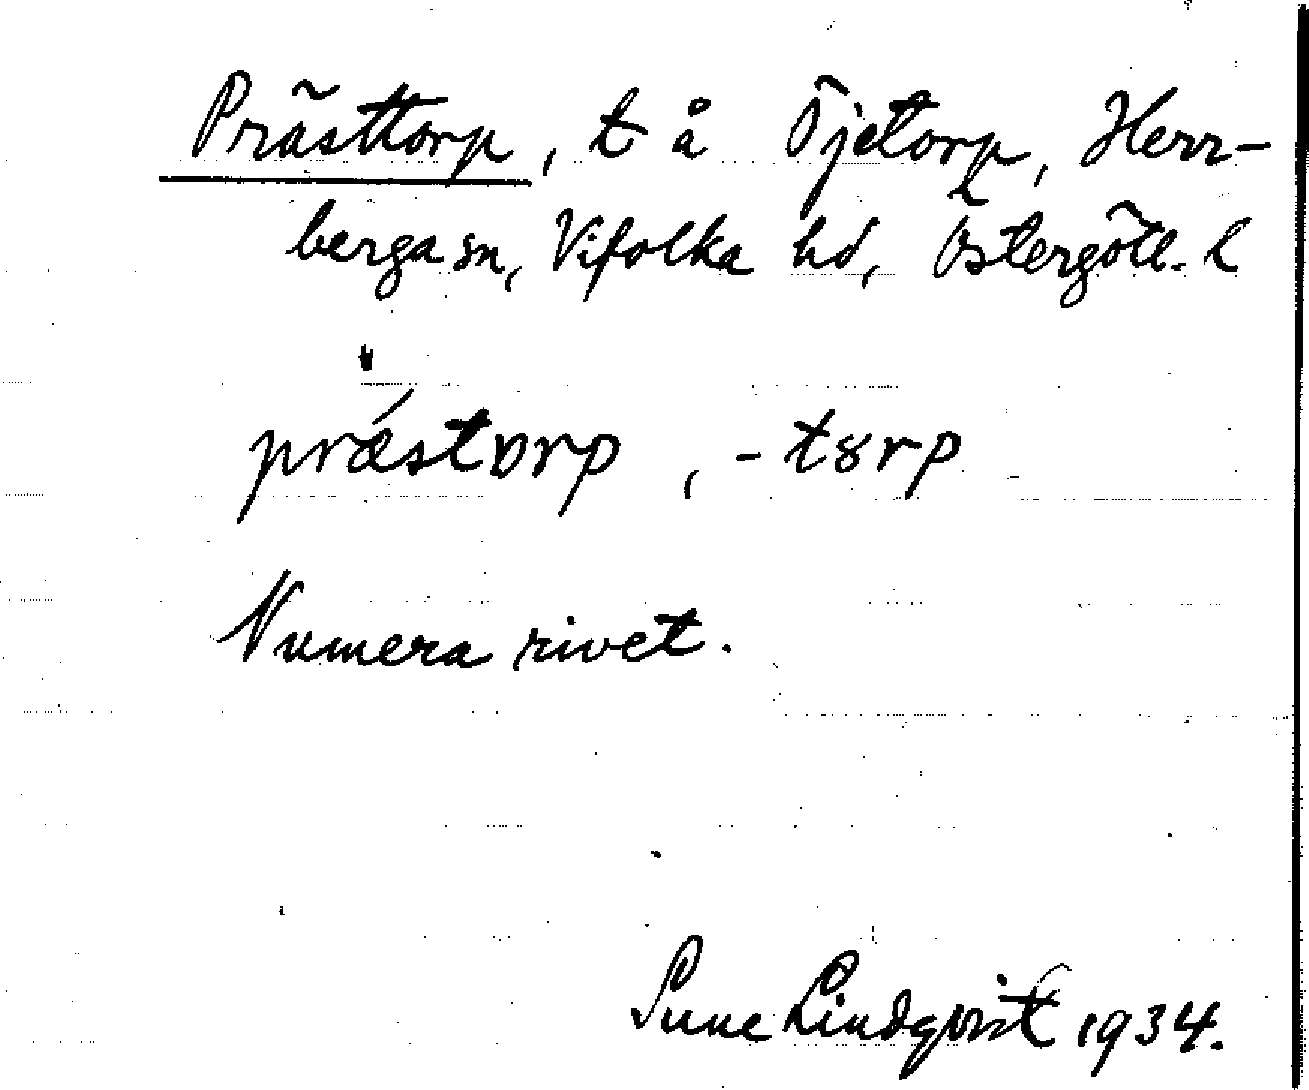 Prästtorp, t å Öjetorp, Herr-
berga sn, Vifolka hd, Östergötl. l
præ´stɒrp, -tȣrp
Numera rivet.
Sune Lindqvist 1934.